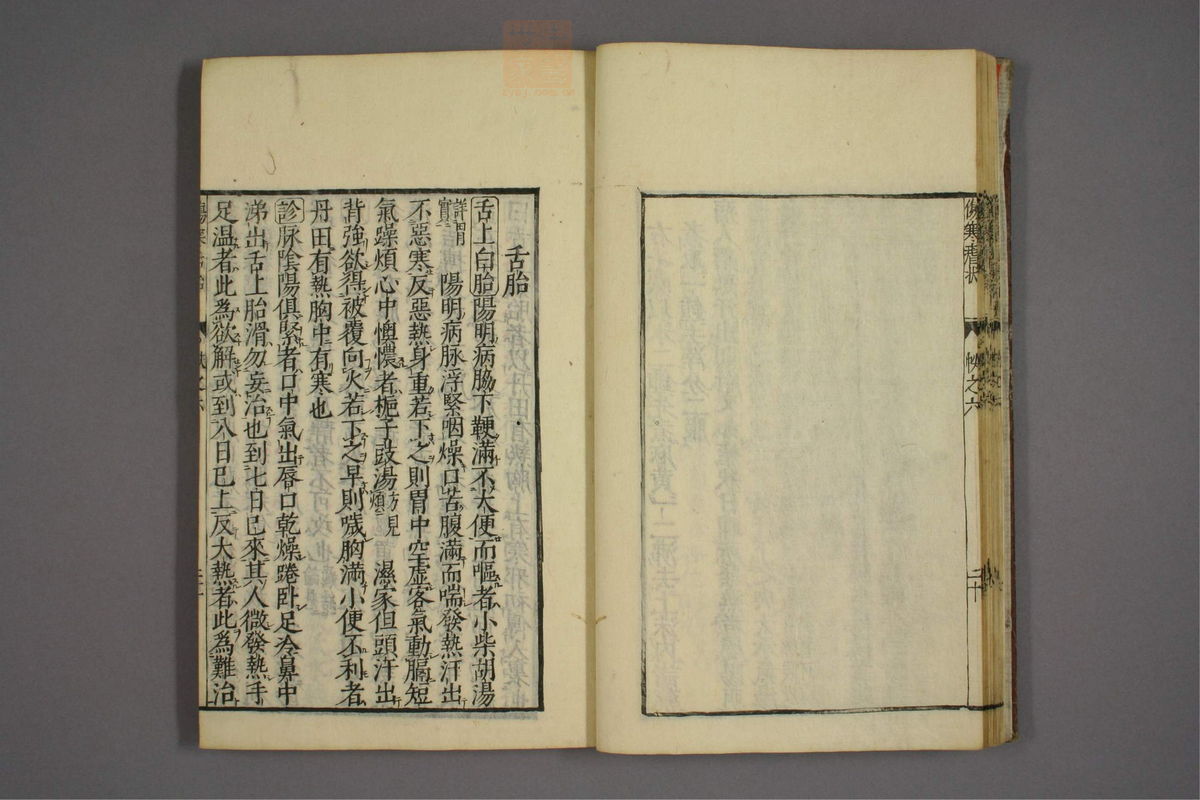 傷寒
帙之六
二十
舌胎
舌上白胎陽明病脇下鞕滿不大便而嘔者小柴胡湯
詳胃
實 陽明病脉浮緊咽燥口苦腹滿而喘發熱汗出
不惡寒反惡熱身重若下之則胃中空虛客氣動膈短
氣躁煩心中懊憹者梔子豉湯方見煩 濕家但頭汗出
背強欲得被覆向火若下之早則噦胸滿小便不利者
丹田有熱胸中有寒也
診脉陰陽俱緊者口中氣出唇口乾燥踡卧足冷鼻中
涕出舌上胎滑勿妄治也到七日已來其人微發熱手
足温者此為欲解或到八日已上反大熱者此為難治